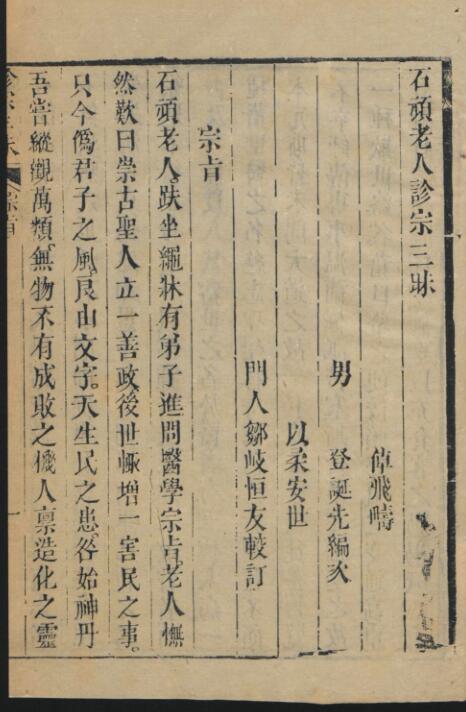 石頑老人診宗三昧
倬飛疇
男 登誕先編次
以柔安世
門人鄒岐恒友較訂
宗旨
石頑老人趺坐繩牀有弟子進問醫學宗旨老人憮
然歎曰崇古聖人立一善政後世輒增一害民之事
只今僞君子之風良由文字天生民之患咎始神丹
吾嘗縱觀萬類無物不有成敗之機人禀造化之靈
宗旨
一